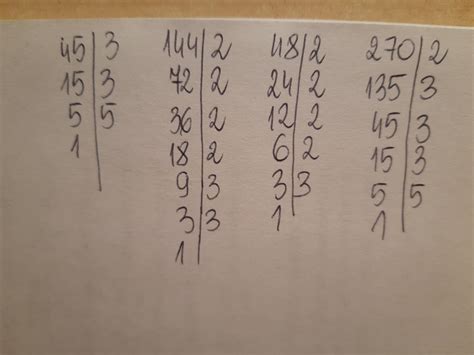 45|3 144|2 48|2 270|2
15|3 72|2 24|2 135|3
5|5 36|2 12|2 45|3
1| 18|2 6|2 15|3
9|3 3|3 5|5
3|3 1 1|
1|